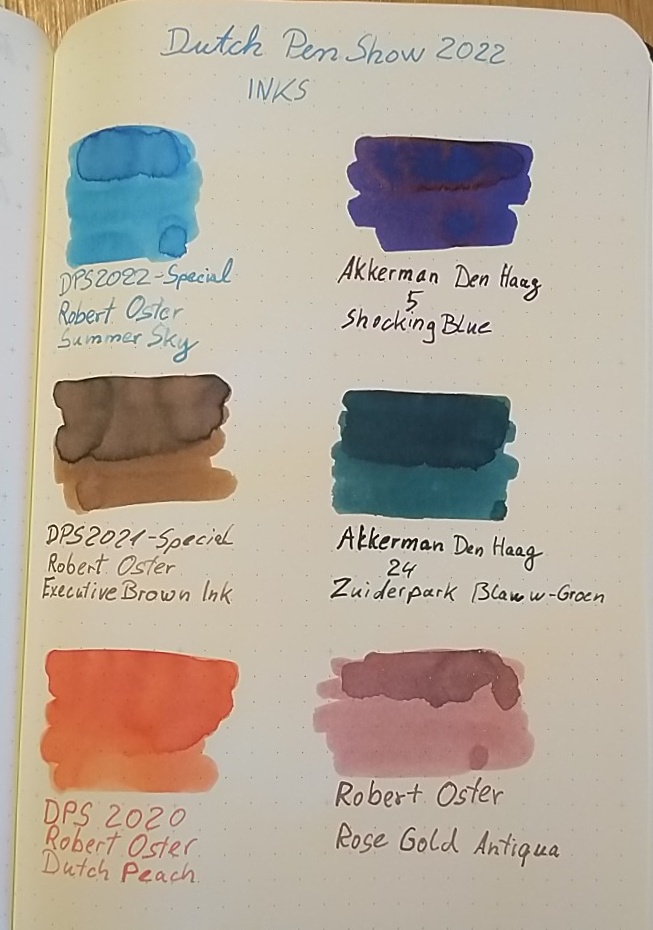 Dutch Pen Show 2022
INKS
DPS2022-Special
Robert Oster
Summer Sky
Akkerman Den Haag
5
Shocking Blue
DPS2021-Special
Robert Oster
Executive Brown Ink
Akkerman Den Haag
24
Zuiderpark Blauw-Groen
DPS 2020
Robert Oster
Dutch Peach
Robert Oster
Rose Gold Antiqua